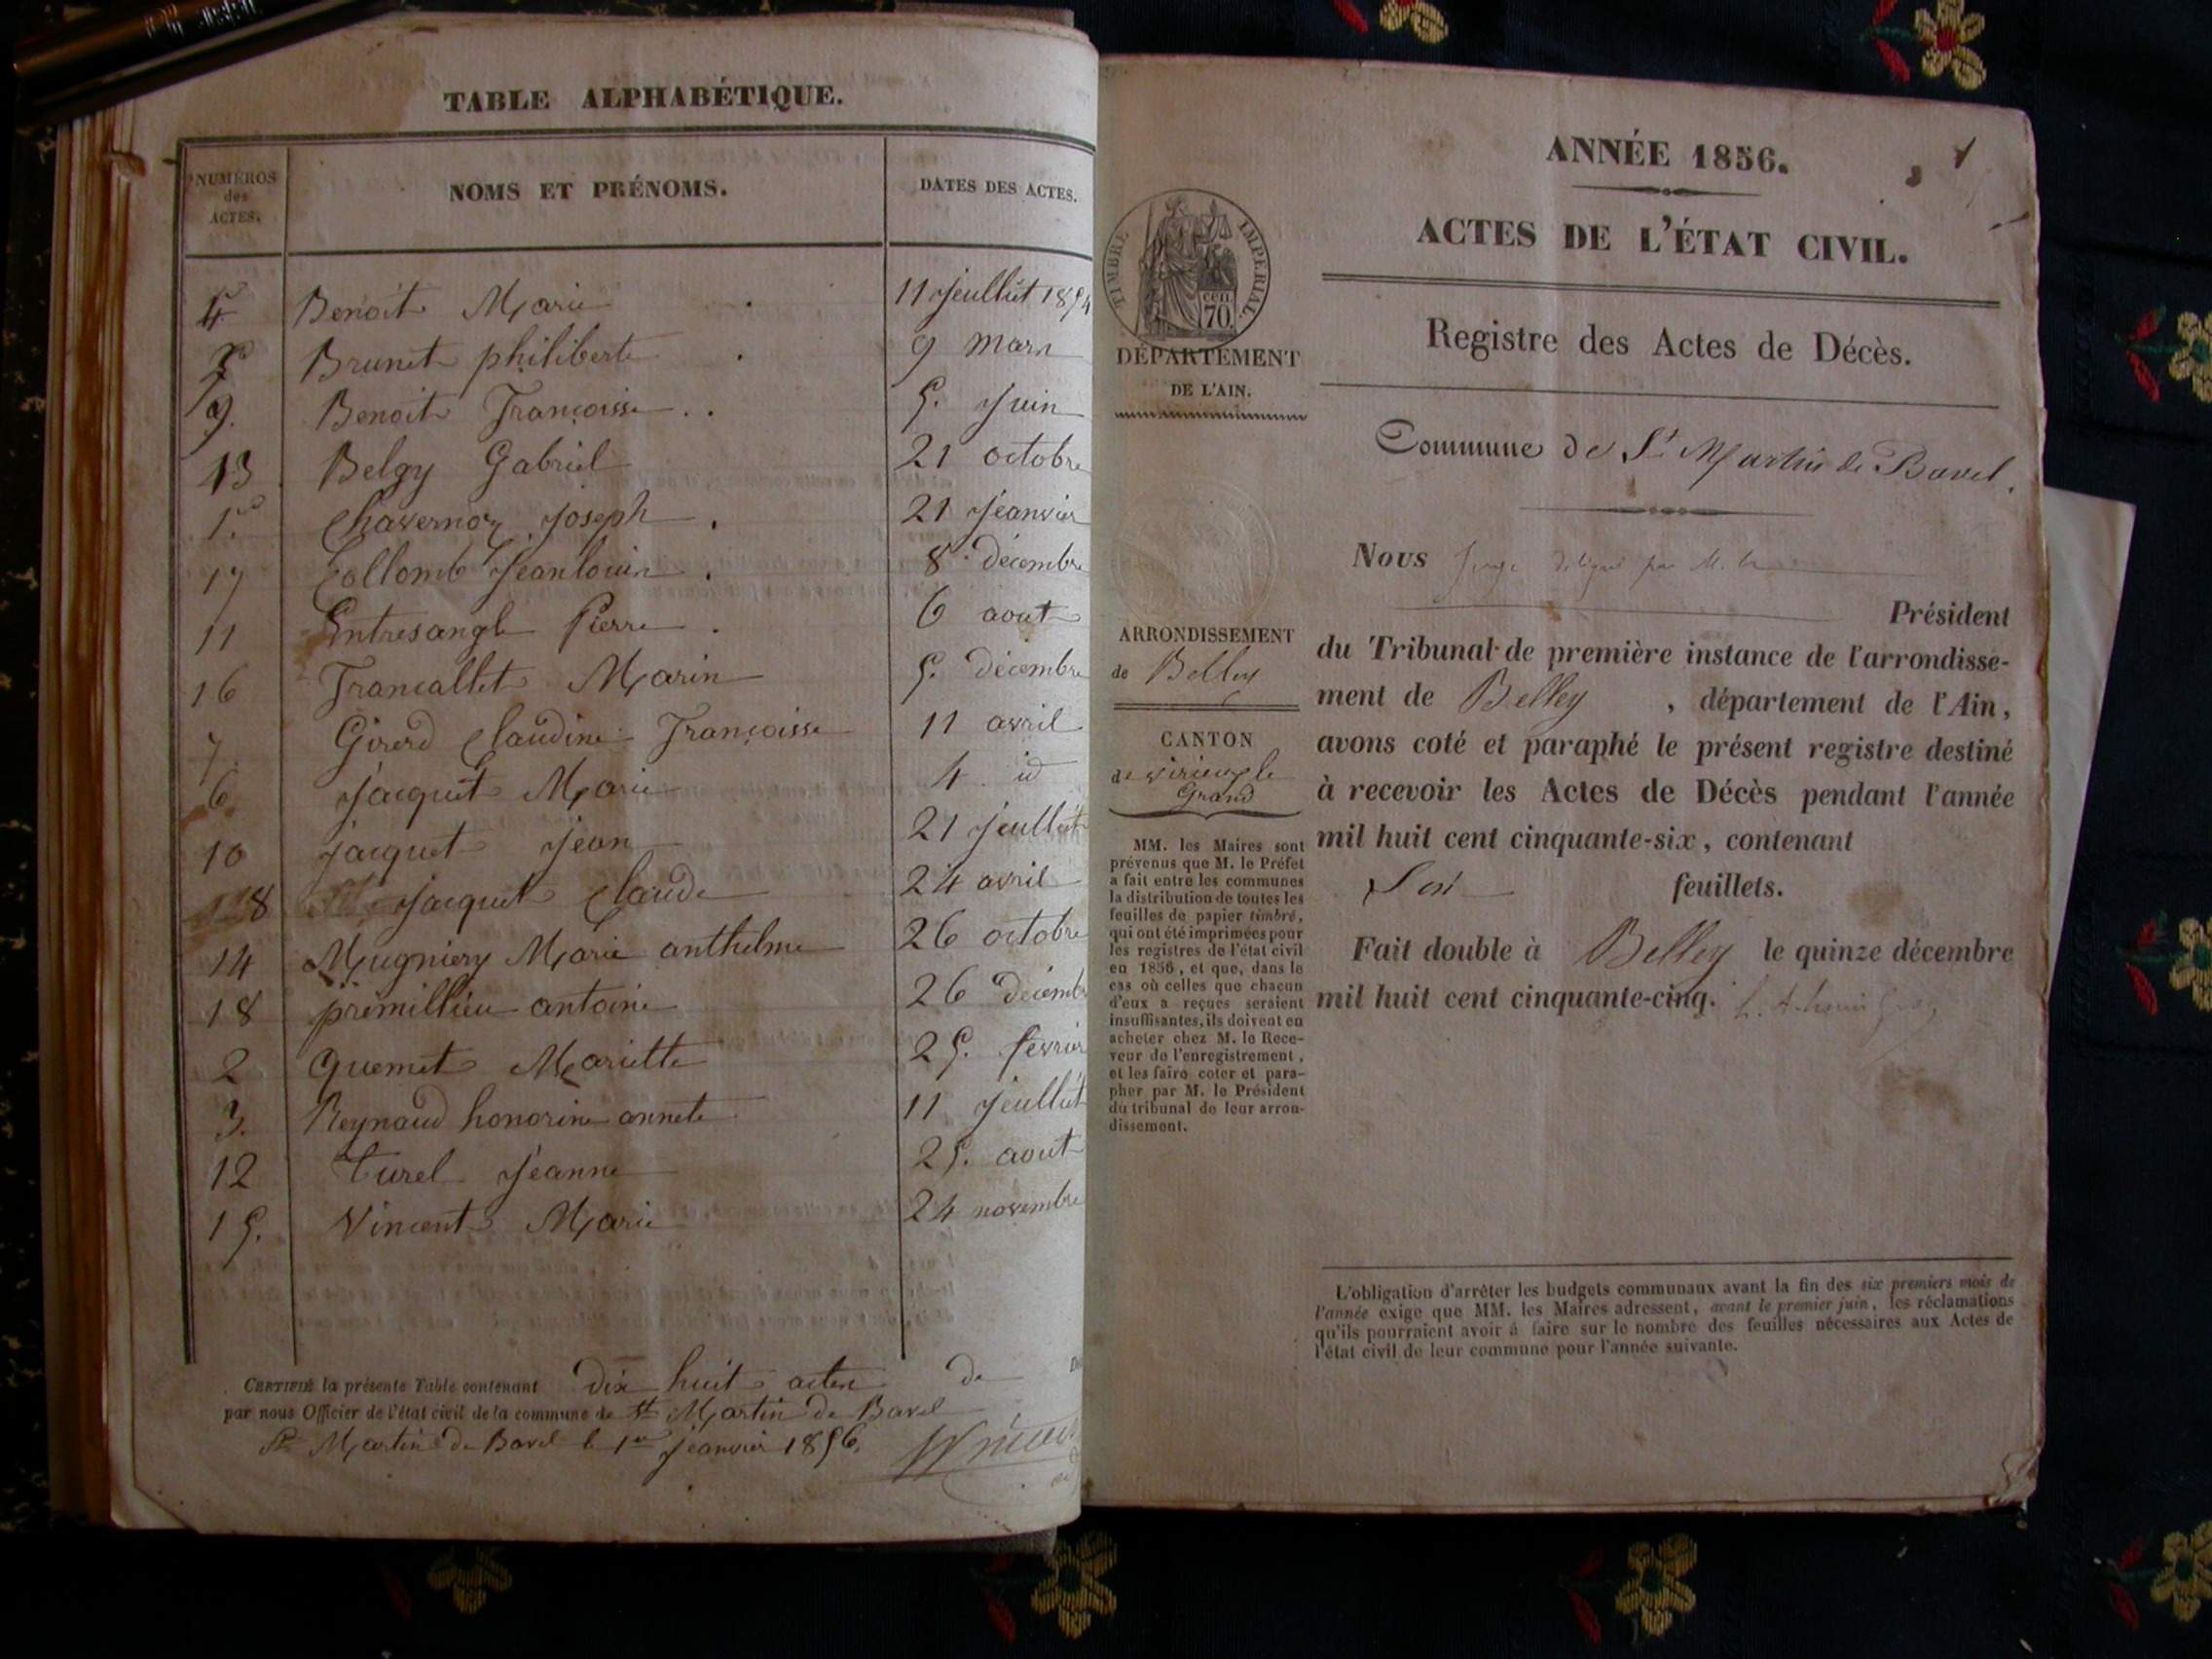 TABLE ALPHABÉTIQUE.
NUMÉROS
des
ACTES.
NOMS ET PRÉNOMS.
DATES DES ACTES.
4 Benoit Marie 11 jeullut 1854
Brunet philiberte 9 mars
9. Benoit Françoisse 5. Juin
13 Belgy Gabriel 21 octobre
1. Chavernoz Joseph 21 jeanvier
17 Collomb Jeanlouis 8 décembre
11 Entresangle Pierre 6 aout
16 Francallet Marin 5. décembre
7 Girerd Claudine Françoisse 11 avril
6 Jacquet Marie 4 id
10 Jacquet Jean 21 jeullut
8 Jacquet Claude 24 avril
14 Mugniery Marie anthelme 26 octobre
18 premillieu antoine 26 décemb
2 Quemet Mariette 25. fevrier
3. Reynaud honorine annete 11 jeullut
12 turel Jeanne 25. aout
15. Vincent Marie 24 novembre
CERTIFIÉ la présente Table contenant dix huit actes de
par nous Officier de l'état civil de la commune de St Martin de Bavel
St Martin de Bavel le 1er jeanvier 1856.
ANNÉE 1856.
1
ACTES DE L'ÉTAT CIVIL.
Registre des Actes de Décès.
TIMBRE IMPERIAL
cen.
70.
DÉPARTEMENT
DE L'AIN.
Commune de St Martin de Bavel.
ARRONDISSEMENT
de Belley
CANTON
de virieu le
Grand
MM. les Maires sont
prévenus que M. le Préfet
a fait entre les communes
la distribution de toutes les
feuilles de papier timbré,
qui ont été imprimées pour
les registres de l'état civil
en 1856, et que, dans le
cas où celles que chacun
d'eux a reçues seraient
insuffisantes, ils doivent en
acheter chez M. le Rece-
veur de l'enregistrement,
et les faire coter et para-
pher par M. le Président
du tribunal de leur arron-
dissement.
Nous Juge délégué par M. le
Président
du Tribunal de première instance de l'arrondisse-
ment de Belley , département de l'Ain,
avons coté et paraphé le présent registre destiné
à recevoir les Actes de Décès pendant l'année
mil huit cent cinquante-six, contenant
feuillets.
Fait double à Belley le quinze décembre
mil huit cent cinquante-cinq.
L'obligation d'arrêter les budgets communaux avant la fin des six premiers mois de
l'année exige que MM. les Maires adressent, avant le premier juin, les réclamations
qu'ils pourraient avoir à faire sur le nombre des feuilles nécessaires aux Actes de
l'état civil de leur commune pour l'année suivante.